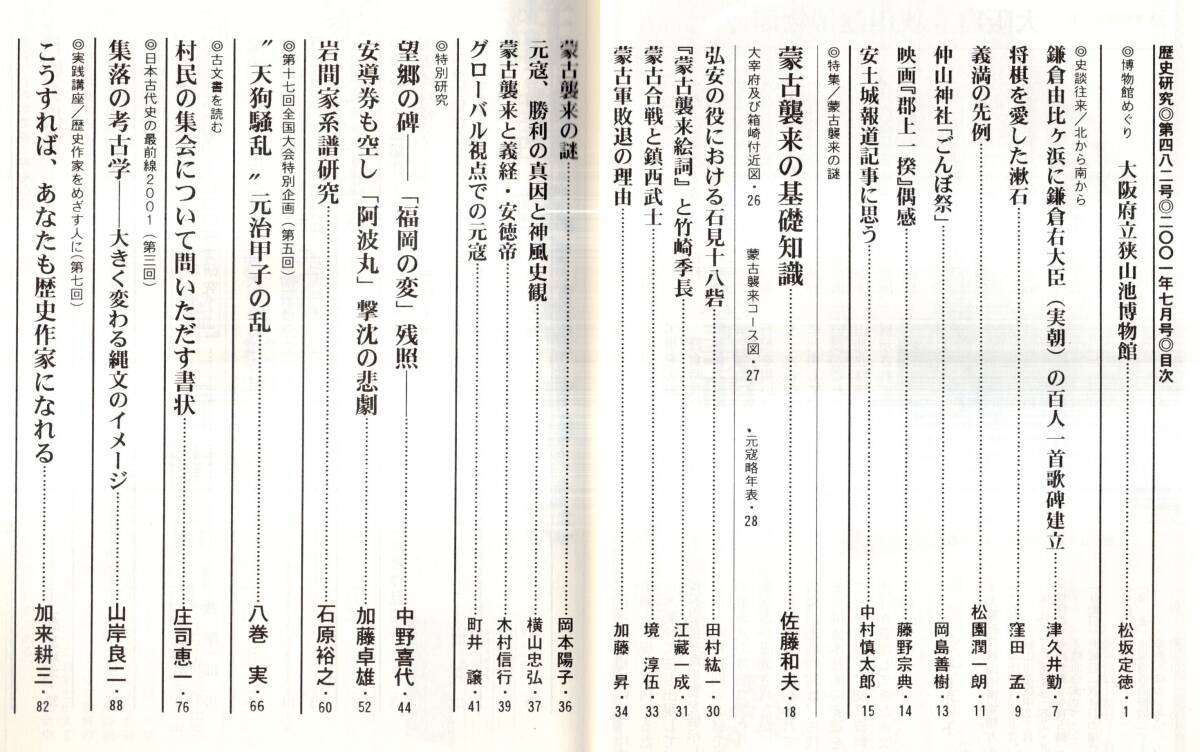 歴史研究◎第四八二号◎二〇〇一年七月号◎目次
◎博物館めぐり 大阪府立狭山池博物館 松坂定徳・1
◎史談往来／北から南から
鎌倉由比ヶ浜に鎌倉右大臣（実朝）の百人一首歌碑建立 津久井勤・7
将棋を愛した漱石 窪田 孟・9
義満の先例 松園潤一朗・11
仲山神社「ごんぼ祭」 岡島善樹・13
映画『郡上一揆』偶感 藤野宗典・14
安土城報道記事に思う 中村慎太郎・15
◎特集／蒙古襲来の謎
蒙古襲来の基礎知識 佐藤和夫・18
大宰府及び箱崎付近図・26 蒙古襲来コース図・27 ・元寇略年表・28
弘安の役における石見十八砦 田村紘一・30
『蒙古襲来絵詞』と竹崎季長 江藏一成・31
蒙古合戦と鎮西武士 境 淳伍・33
蒙古軍敗退の理由 加藤 昇・34
蒙古襲来の謎 岡本陽子・36
元寇、勝利の真因と神風史観 横山忠弘・37
蒙古襲来と義経・安徳帝 木村信行・39
グローバル視点での元寇 町井 譲・41
◎特別研究
望郷の碑――「福岡の変」残照―― 中野喜代・44
安導券も空し「阿波丸」撃沈の悲劇 加藤卓雄・52
岩間家系譜研究 石原裕之・60
◎第十七回全国大会特別企画（第五回）
〝天狗騒乱〟元治甲子の乱 八巻 実・66
◎古文書を読む
村民の集会について問いただす書状 庄司恵一・76
◎日本古代史の最前線２００１（第三回）
集落の考古学――大きく変わる縄文のイメージ 山岸良二・88
◎実践講座／歴史作家をめざす人に（第七回）
こうすれば、あなたも歴史作家になれる 加来耕三・82